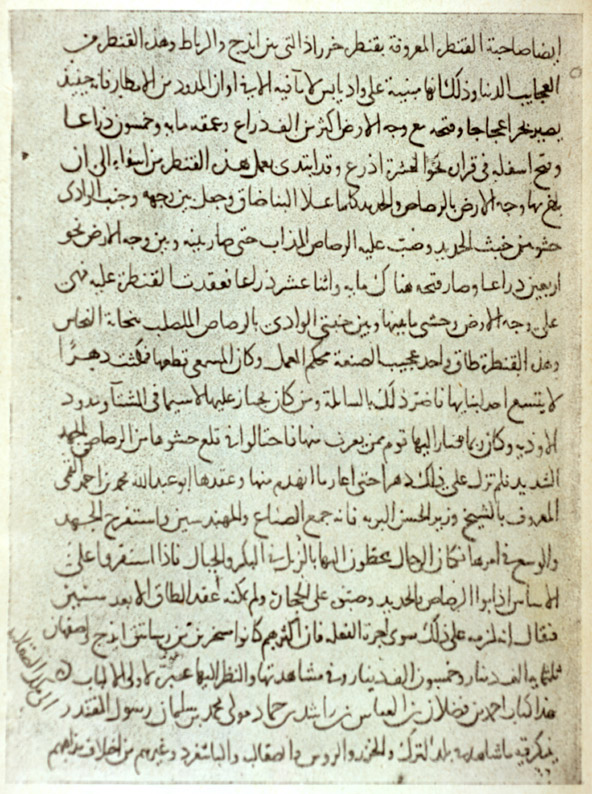 ايضا صاحبة القنطرة المعروفة بقنطرة خرزاذ التى بين ايذج والرباط وهذه القنطرة من
العجايب الدنيا وذلك انها مبنية على واد يابس لا مآ فيه الا في اوان المدود من الامطار فانه حينيذ
يصير بحرا عجاجا وفتحه مع وجه الارض اكثر من الف ذراع وعمقه مايه وخمسون ذراعا
وفتح اسفله فى قراره نحو العشرة اذرع وقد ابتدى بعمل هذه القنطرة من اسفلها الى ان
بلغ بها وجه الارض بالرصاص والحديد كلما علا البنا ضاق وجعل بين وجهه وجنب الوادى
حشو من خبث الحديد وصب عليه الرصاص المذاب حتى صار بينه وبين وجه الارض نحو
اربعين ذراعا وصار فتحه هناك مايه واثنا عشر ذراعا فعقدت القنطرة عليه فهى
على وجه الارض وحشى ما بينها وبين جنبتى الوادى بالرصاص المصلب بنحاتة النحاس
وهذه القنطرة طاق واحد عجيب الصنعة محكم العمل وكان المسمعى قطعها فمكثت دهرًا
لا يتسع احد لبنايها فاضر ذلك بالسابلة ومن كان يجتاز عليها لا سيما فى الشتآ ومدود
الاوديه وكان ربما صار اليها قوم ممن يقرب منها فاحتالوا في قلع حشوها من الرصاص بالجهد
الشديد فلم تزل على ذلك دهرا حتى اعاد ما انهدم منها وعقدها ابو عبدالله محمد بن احمد القمى
المعروف بالشيخ وزير الحسن البويه فانه جمع الصناع والمهندسين واستفرغ الجهد
والوسع في امرها فكان الرجال يحطون اليها بالزبل في البكر والحبال فاذا استقروا على
الاساس اذابوا الرصاص بالحديد وصبوه على الحجارة ولم يمكنه عقد الطاق الا بعد سنتين
فيقال انه لزمه على ذلك سوى اجرة الفعلة فان اكثرهم كانوا مسخرين من رساتيق ايذج واصفهان
ثلثمايه الف دينار وخمسون الف دينار وفى مشاهدتها والنظر اليها عبرة لاولى الالباب
هذا كتاب احمد بن فضلان بن العباس بن راشد بن حماد مولى محمد بن سلمان رسول المقتدر
الى ملك الصقالبة
يذكر فيه ما شاهد في بلد الترك والخزر والروس والصقالبة والباشغرد وغيرهم من اختلاف مذاهبهم